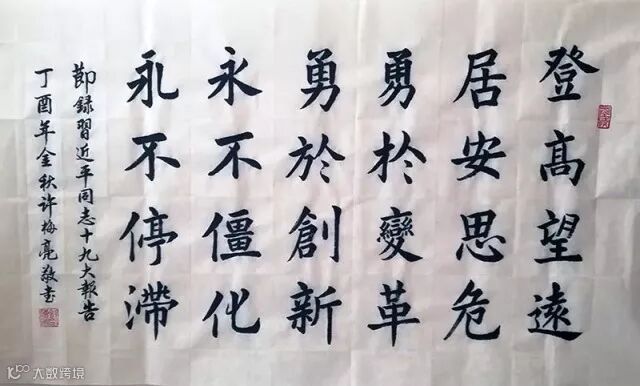 登高望遠
居安思危
勇於變革
勇於創新
永不僵化
永不停滯
節録習近平同志十九大報告
丁酉年金秋许梅亮敬书
大数跨境